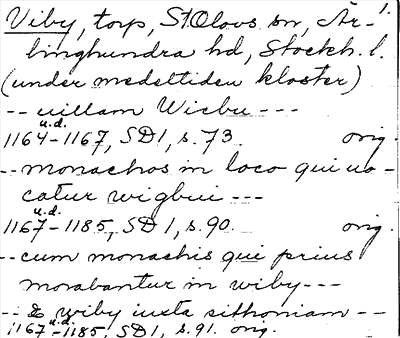 Viby, torp, St Olovs sn, Är- 1.
linghundra hd, Stockh. l.
(under medeltiden kloster)
-- uillam Wicbu ---
1164-1167, u.d. SD1, s. 73. orig.
-- monachos in loco qui uo-
catur wigbui ---
1167-1185, u.d. SD 1, s. 90. orig.
-- cum monachis qui prius
morabantur in wiby ---
-- & wiby iuxta sithoniam --
1167-1185, u.d. SD 1, s. 91. orig.